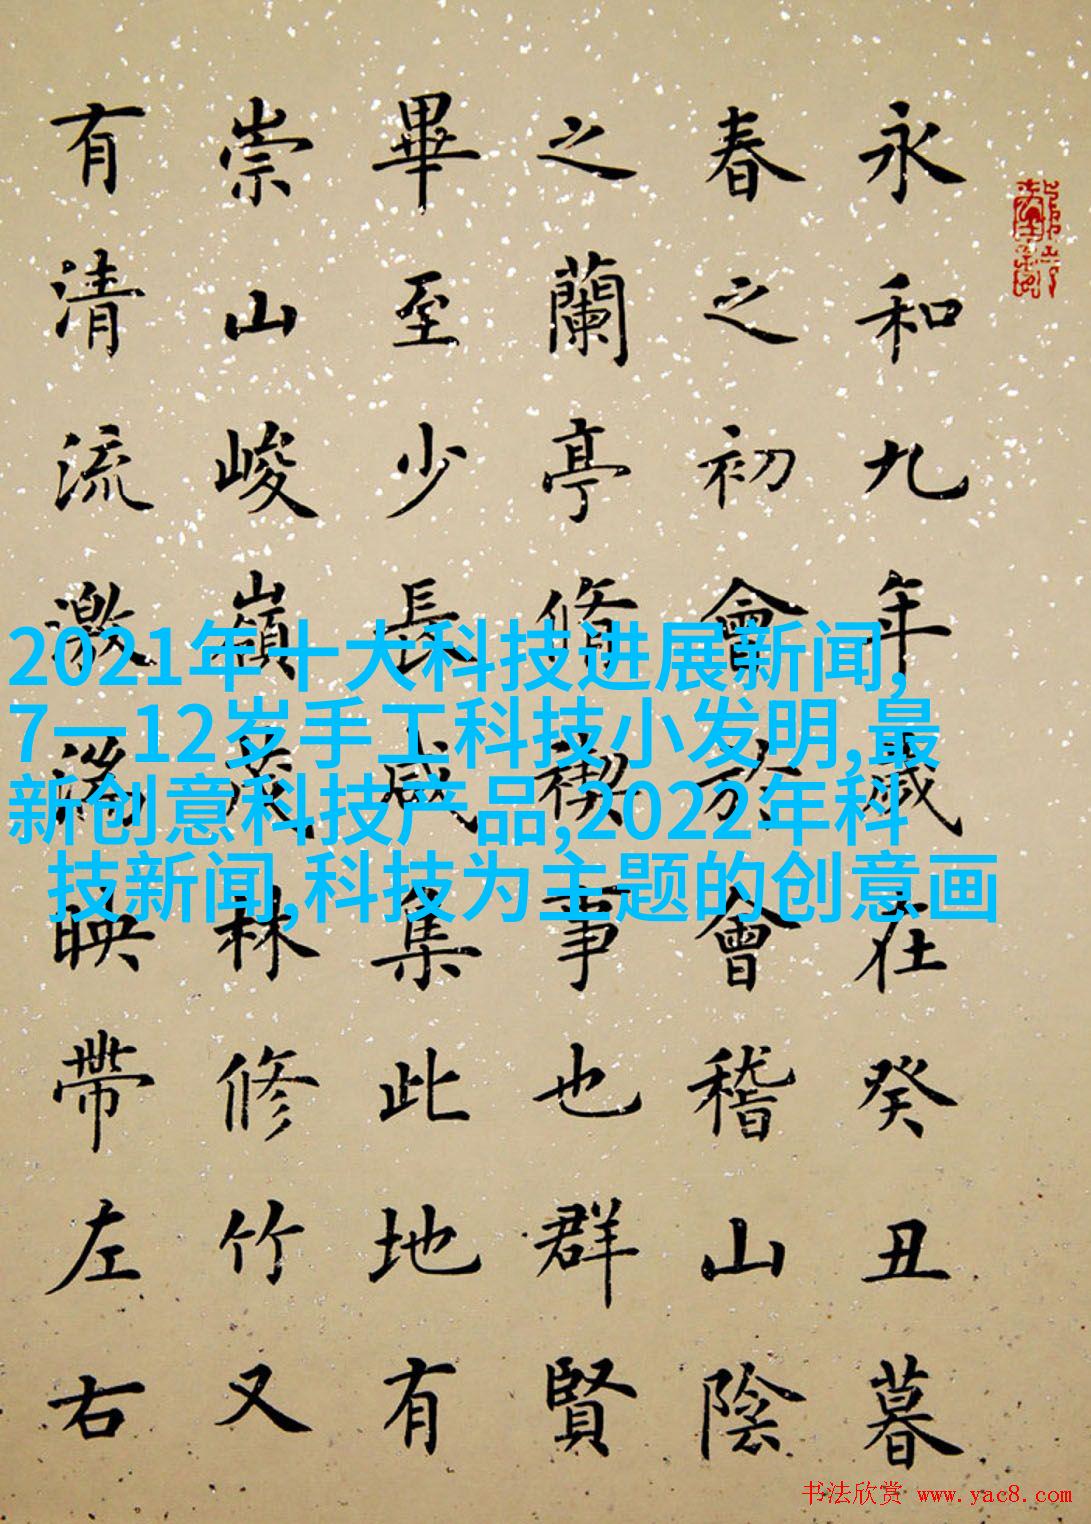 永和九年歲在癸丑暮
春之初會於會稽山陰
之蘭亭脩禊事也群賢
畢至少長咸集此地有
崇山峻嶺茂林修竹又
有清流激湍映帶左右
2021年十大科技进展新闻,
7—12岁手工科技小发明,最
新创意科技产品,2022年科
技新闻,科技为主题的创意画
书法欣赏 www.yac8.com